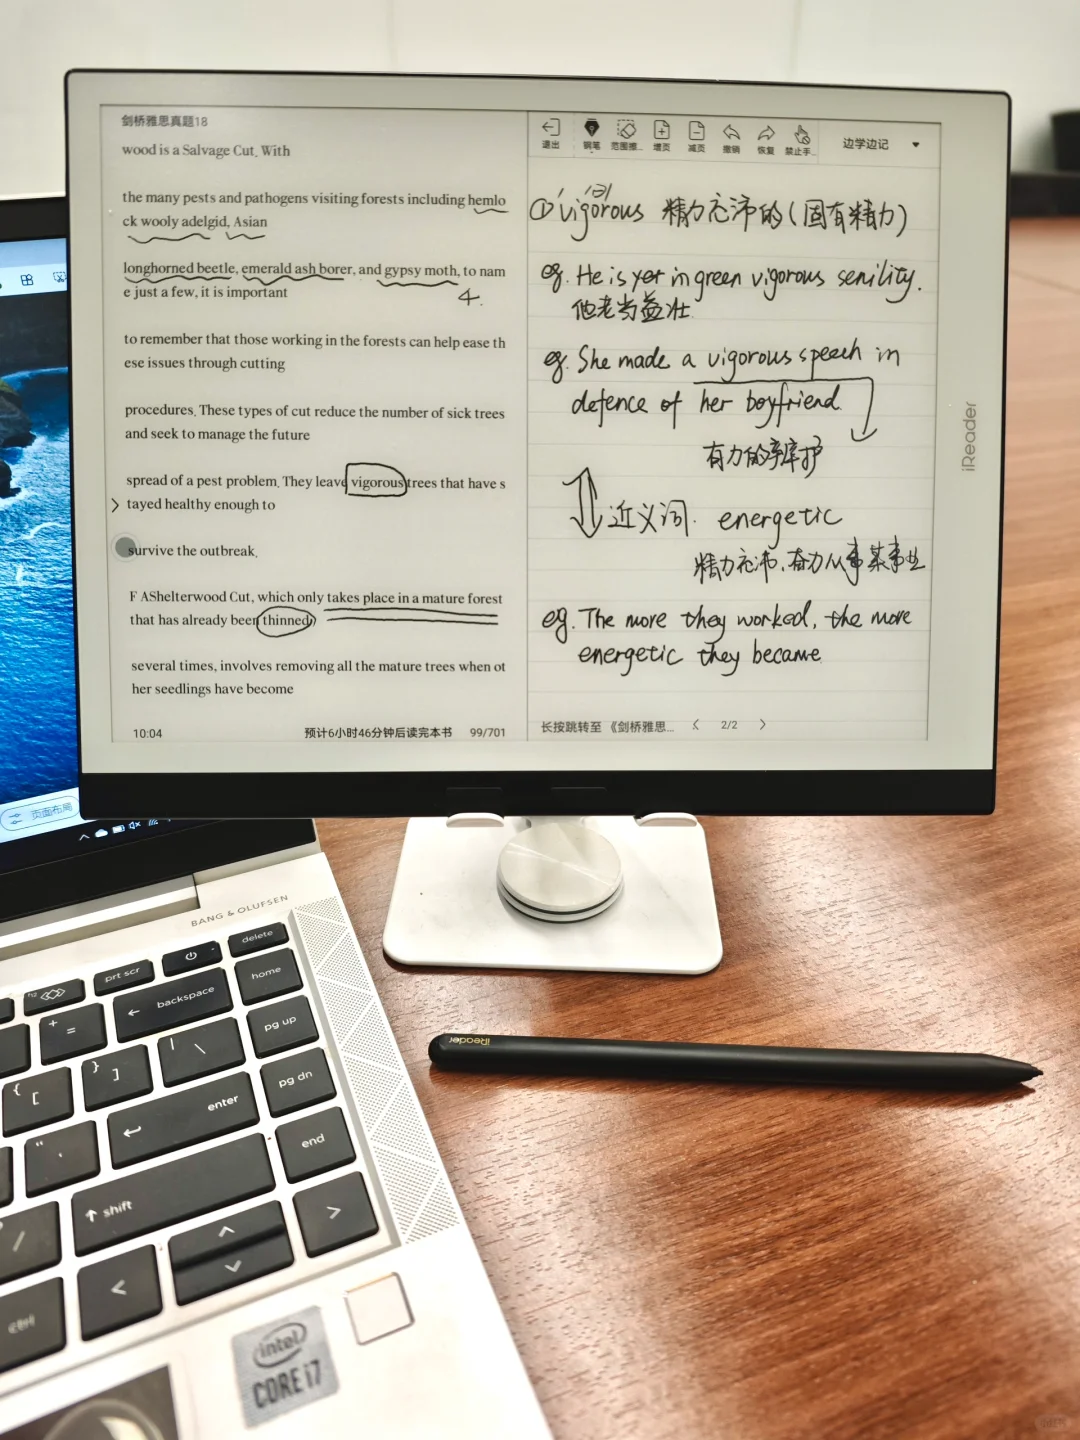 剑桥雅思真题18
wood is a Salvage Cut. With
the many pests and pathogens visiting forests including hemlo
ck wooly adelgid, Asian
longhorned beetle, emerald ash borer, and gypsy moth, to nam
e just a few, it is important
4.
to remember that those working in the forests can help ease th
ese issues through cutting
procedures. These types of cut reduce the number of sick trees
and seek to manage the future
spread of a pest problem. They leave vigorous trees that have s
tayed healthy enough to
survive the outbreak.
F AShelterwood Cut, which only takes place in a mature forest
that has already been thinned
several times, involves removing all the mature trees when ot
her seedlings have become
10:04 预计6小时46分钟后读完本书 99/701
退出 钢笔 范围擦... 增页 减页 撤销 恢复 禁止手... 边学边记
① vigorous 精力充沛的(固有精力)
eg. He is yet in green vigorous senility.
他老当益壮
eg. She made a vigorous speech in
defence of her boyfriend.
有力的辩护
近义词. energetic
精力充沛、奋力从事某事业
eg. The more they worked, the more
energetic they became.
长按跳转至 《剑桥雅思... < 2/2 >
iReader
页面布局
BANG & OLUFSEN
delete
prt scr
home
backspace
+ =
pg up
| \
} ]
{ [
pg dn
enter
end
shift
ctrl
intel
CORE i7
iReader